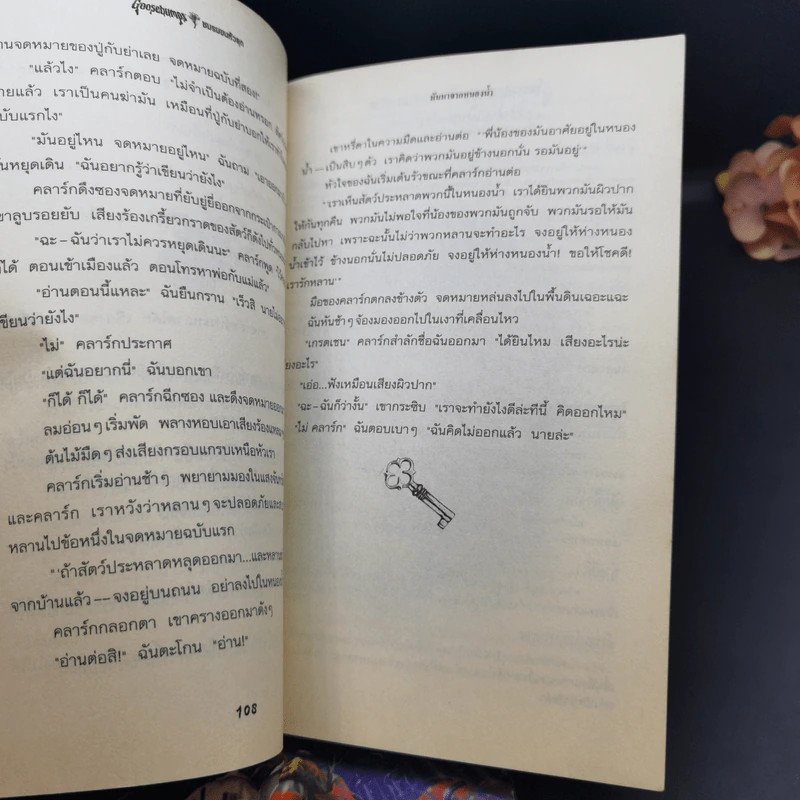 Goosebumps ชมรมขนหัวลุก
านจดหมายของปู่กับย่าเลย จดหมายฉบับที่สอง!"
"แล้วไง" คลาร์กตอบ "ไม่จำเป็นต้องอ่านหรอก
ายแล้ว เราเป็นคนฆ่ามัน เหมือนที่ปู่กับย่าบอกให้เรา
บับแรกไง"
"มันอยู่ไหน จดหมายอยู่ไหน" ฉันถาม
ันหยุดเดิน "ฉันอยากรู้ว่าเขียนว่ายังไง"
คลาร์กดึงซองจดหมายที่ยับยู่ยี่ออกจากกระเป๋า
ขาลูบรอยยับ เสียงร้องเกรี้ยวกราดของสัตว์ก็ดังไปทั่ว
"ฉะ–ฉันว่าเราไม่ควรหยุดเดินนะ" คลาร์กพูด
ก็ได้ ตอนเข้าเมืองแล้ว ตอนโทรหาพ่อกับแม่แล้ว"
"อ่านตอนนี้แหละ" ฉันยืนกราน "เร็วสิ
เขียนว่ายังไง"
"ไม่" คลาร์กประกาศ
"แต่ฉันอยากนี่" ฉันบอกเขา
"ก็ได้ ก็ได้" คลาร์กฉีกซอง และดึงจดหมายออก
ลมอ่อนๆ เริ่มพัด พลางหอบเอาเสียงร้อง
ต้นไม้มืดๆ ส่งเสียงกรอบแกรบเหนือหัวเรา
คลาร์กเริ่มอ่านช้าๆ พยายามมองในแสงจันทร์
และคลาร์ก เราหวังว่าหลานๆ จะปลอดภัยและ
หลานไปข้อหนึ่งในจดหมายฉบับแรก
"'ถ้าสัตว์ประหลาดหลุดออกมา...และหลาน
จากบ้านแล้ว––จงอยู่บนถนน อย่าลงไปในหนอง
คลาร์กกลอกตา เขาครางออกมาดังๆ
"อ่านต่อสิ!" ฉันตะโกน "อ่าน!"
108
มันมาจากหนองน้ำ
เขาหรี่ตาในความมืดและอ่านต่อ "'พี่น้องของมันอาศัยอยู่ในหนอง
น้ำ––เป็นสิบๆ ตัว เราคิดว่าพวกมันอยู่ข้างนอกนั่น รอมันอยู่'"
หัวใจของฉันเริ่มเต้นรัวขณะที่คลาร์กอ่านต่อ
"'เราเห็นสัตว์ประหลาดพวกนี้ในหนองน้ำ เราได้ยินพวกมันผิวปาก
ให้กันทุกคืน พวกมันไม่พอใจที่น้องของพวกมันถูกจับ พวกมันรอให้มัน
กลับไปหา เพราะฉะนั้นไม่ว่าพวกหลานจะทำอะไร จงอยู่ให้ห่างหนอง
น้ำเข้าไว้ ข้างนอกนั่นไม่ปลอดภัย จงอยู่ให้ห่างหนองน้ำ! ขอให้โชคดี!
เรารักหลาน'"
มือของคลาร์กตกลงข้างตัว จดหมายหล่นลงไปในพื้นดินเฉอะแฉะ
ฉันหันช้าๆ จ้องมองออกไปในเงาที่เคลื่อนไหว
"เกรตเชน" คลาร์กสำลักชื่อฉันออกมา "ได้ยินไหม เสียงอะไรน่ะ
ยงอะไร"
"เอ่อ...ฟังเหมือนเสียงผิวปาก"
"ฉะ–ฉันก็ว่างั้น" เขากระซิบ "เราจะทำยังไงดีล่ะทีนี้ คิดออกไหม"
"ไม่ คลาร์ก" ฉันตอบเบาๆ "ฉันคิดไม่ออกแล้ว นายล่ะ"